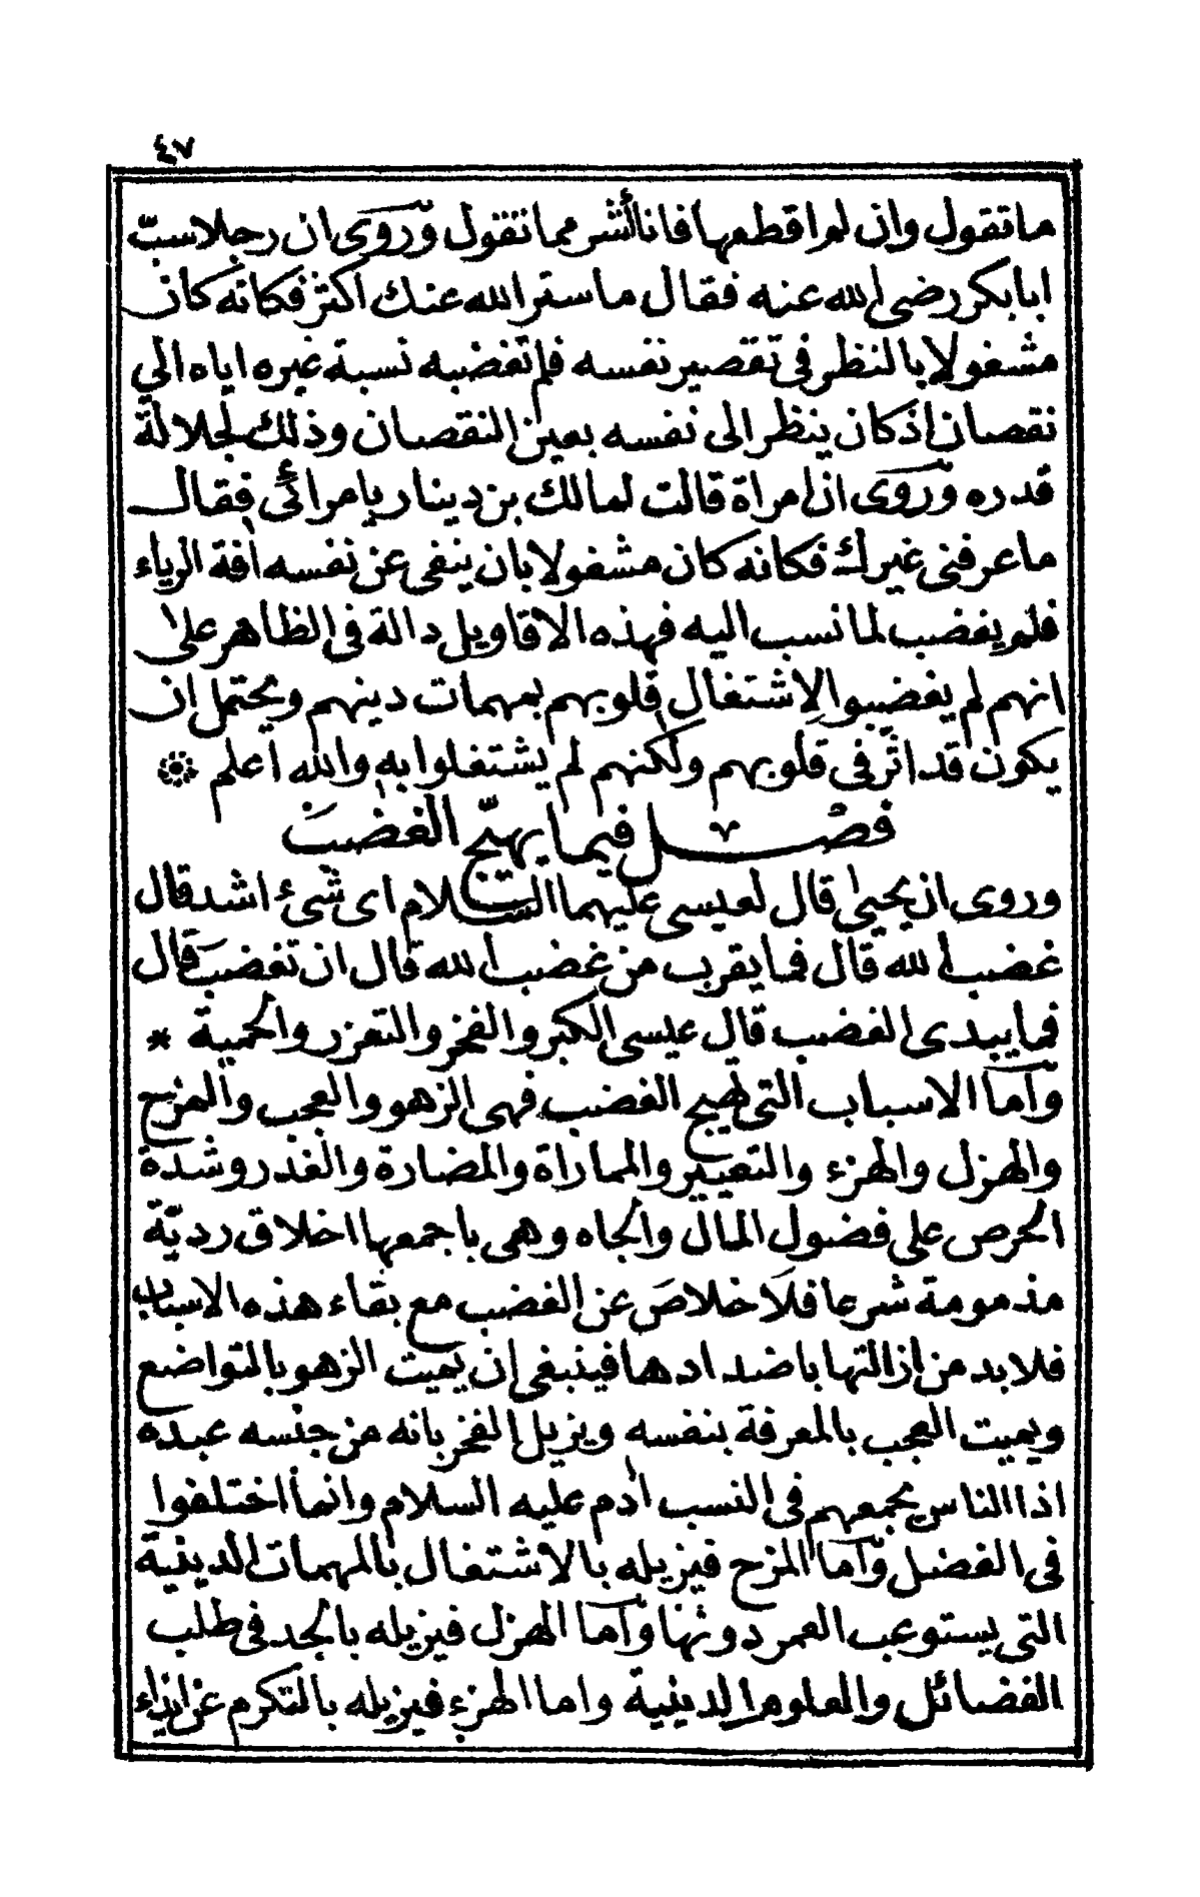 ٤٧
ما تقول وان لم اقطعها فانا أشر مما تقول وروى ان رجلا سبّ
ابا بكر رضى الله عنه فقال ما ستر الله عنك اكثر فكانه كان
مشغولا بالنظر فى تقصير نفسه فلم تغضبه نسبة غيره اياه الي
نقصان اذ كان ينظر الى نفسه بعين النقصان وذلك لجلالة
قدره وروى ان امراة قالت لمالك بن دينار يا مرائى فقال
ما عرفنى غيرك فكانه كان مشغولا بان ينفى عن نفسه افة الرياء
فلم يغضب لما نسب اليه فهذه الاقاويل دالة فى الظاهر على
انهم لم يغضبوا لاشتغال قلوبهم بمهمات دينهم ويحتمل ان
يكون قد اثّر فى قلوبهم ولكنهم لم يشتغلوا به والله اعلم ۞
فصل فيما يهيّج الغضب
وروى ان يحيى قال لعيسى عليهما السلام اى شىء اشد قال
غضب الله قال فما يقرب من غضب الله قال ان تغضب قال
فما يبدى الغضب قال عيسى الكبر والفخر والتعزر والحمية *
وآما الاسباب التى تهيج الغضب فهى الزهو والعجب والمزح
والهزل والهزء والتعيير والمماراة والمضارة والغدر وشدة
الحرص على فضول المال والجاه وهى باجمعها اخلاق رديّة
مذمومة شرعا فلا خلاص عن الغضب مع بقاء هذه الاسباب
فلا بد من ازالتها باضدادها فينبغى ان يميت الزهو بالتواضع
ويميت العجب بالمعرفة بنفسه ويزيل الفخر بانه من جنسه عبده
اذا الناس يجمعهم فى النسب ادم عليه السلام وانما اختلفوا
فى الفضل وآما المزح فيزيله بالاشتغال بالمهمات الدينية
التى يستوعب العمر دونها وآما الهزل فيزيله بالجد فى طلب
الفضائل والعلوم الدينية واما الهزء فيزيله بالتكرم عن ايذاء